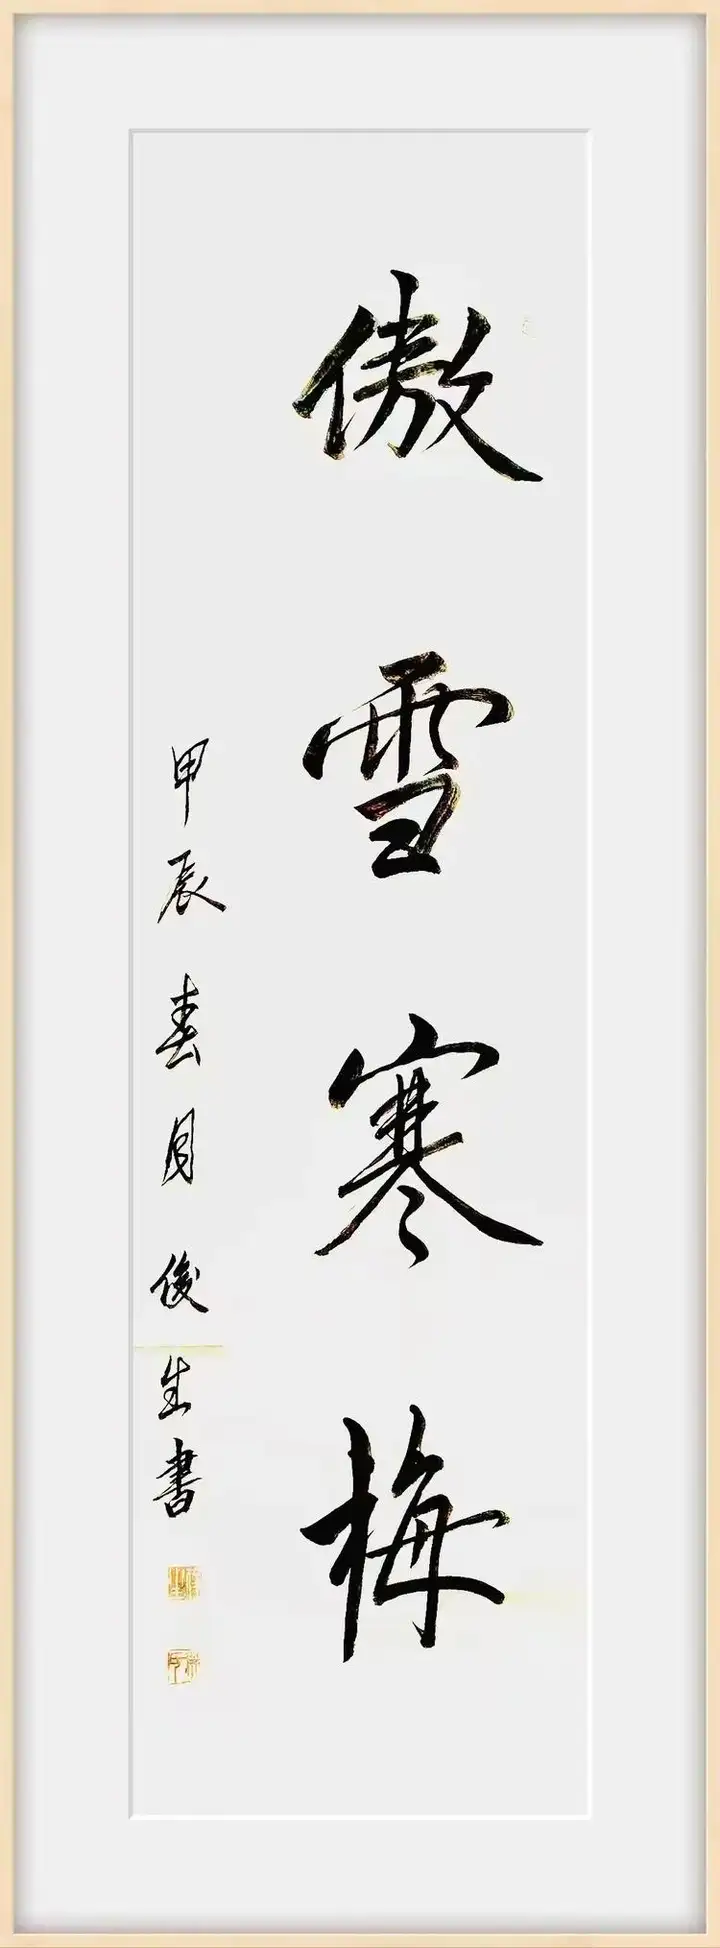 傲雪寒梅
甲辰春月俊生書